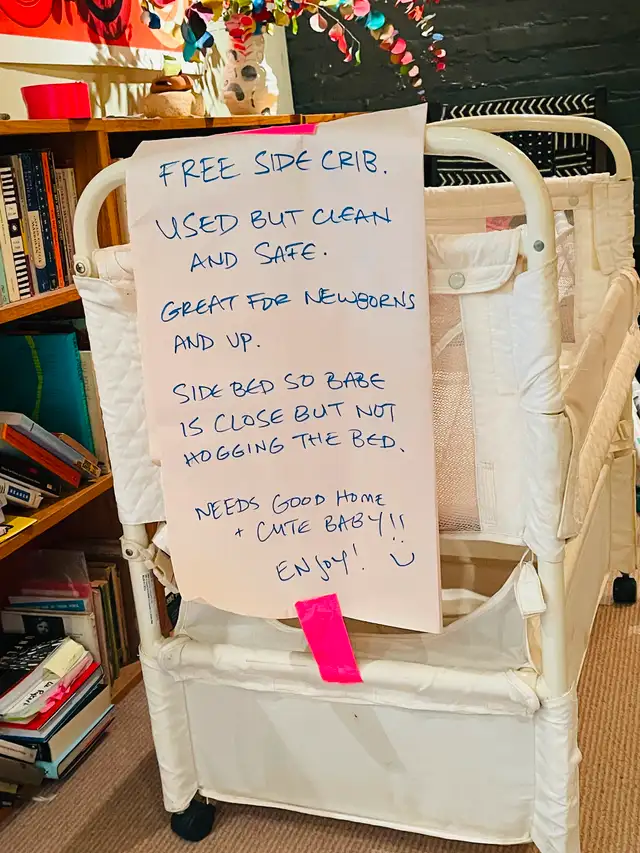 FREE SIDE CRIB.
USED BUT CLEAN
AND SAFE.
GREAT FOR NEWBORNS
AND UP.
SIDE BED SO BABE
IS CLOSE BUT NOT
HOGGING THE BED.
NEEDS GOOD HOME
+ CUTE BABY!!
ENJOY!